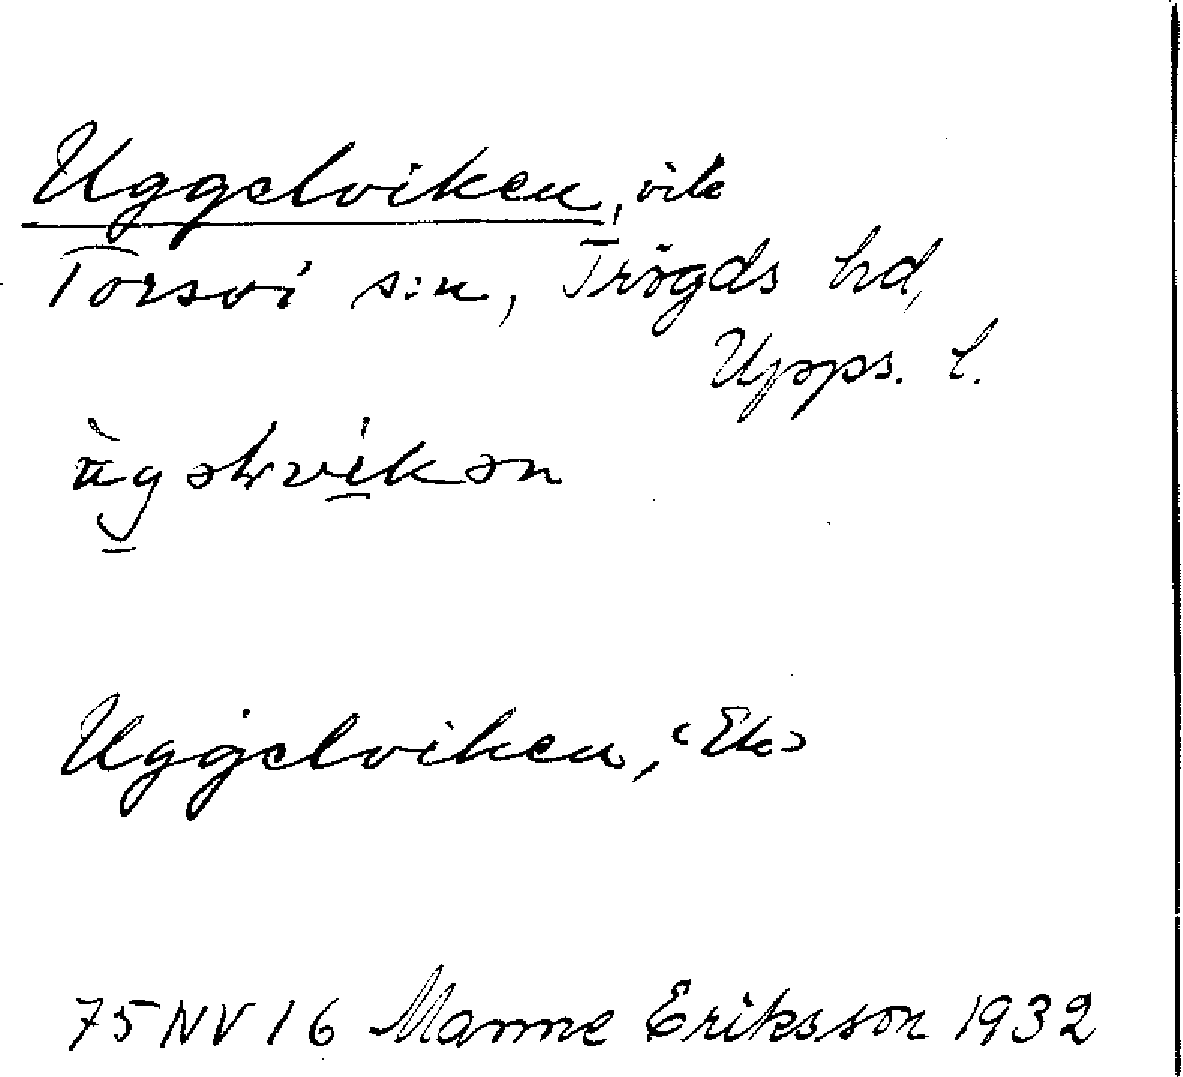 Uggelviken, vik
Torsvi s:n, Trögds hd,
Upps. l.
ùgəlvíkən
Uggelviken, (Ek)
75 NV 16 Manne Eriksson 1932